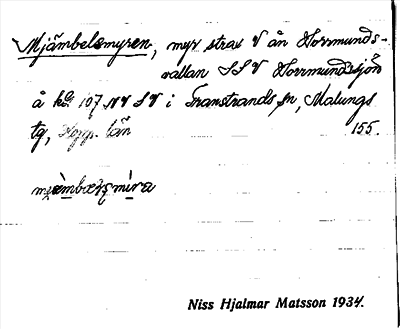 Mjämbelsmyren, myr strax V ån Horrmunds-
vallan SSV Horrmundsjön
å kbl 107 NV SV i Transtrands sn, Malungs
tg, Kopp. län 155.
Niss Hjalmar Matsson 1934.